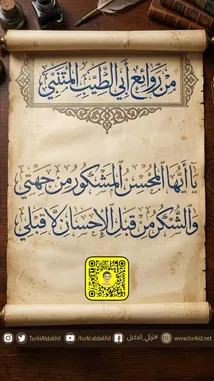 من روائع أبي الطيب المتنبي
يا أيها المحسن المشكور من جهتي
والشكر من قبل الإحسان لا قبلي
TurkiAldakhil
/turki.aldakhil
#تركي_الدخيل
www.turkid.net